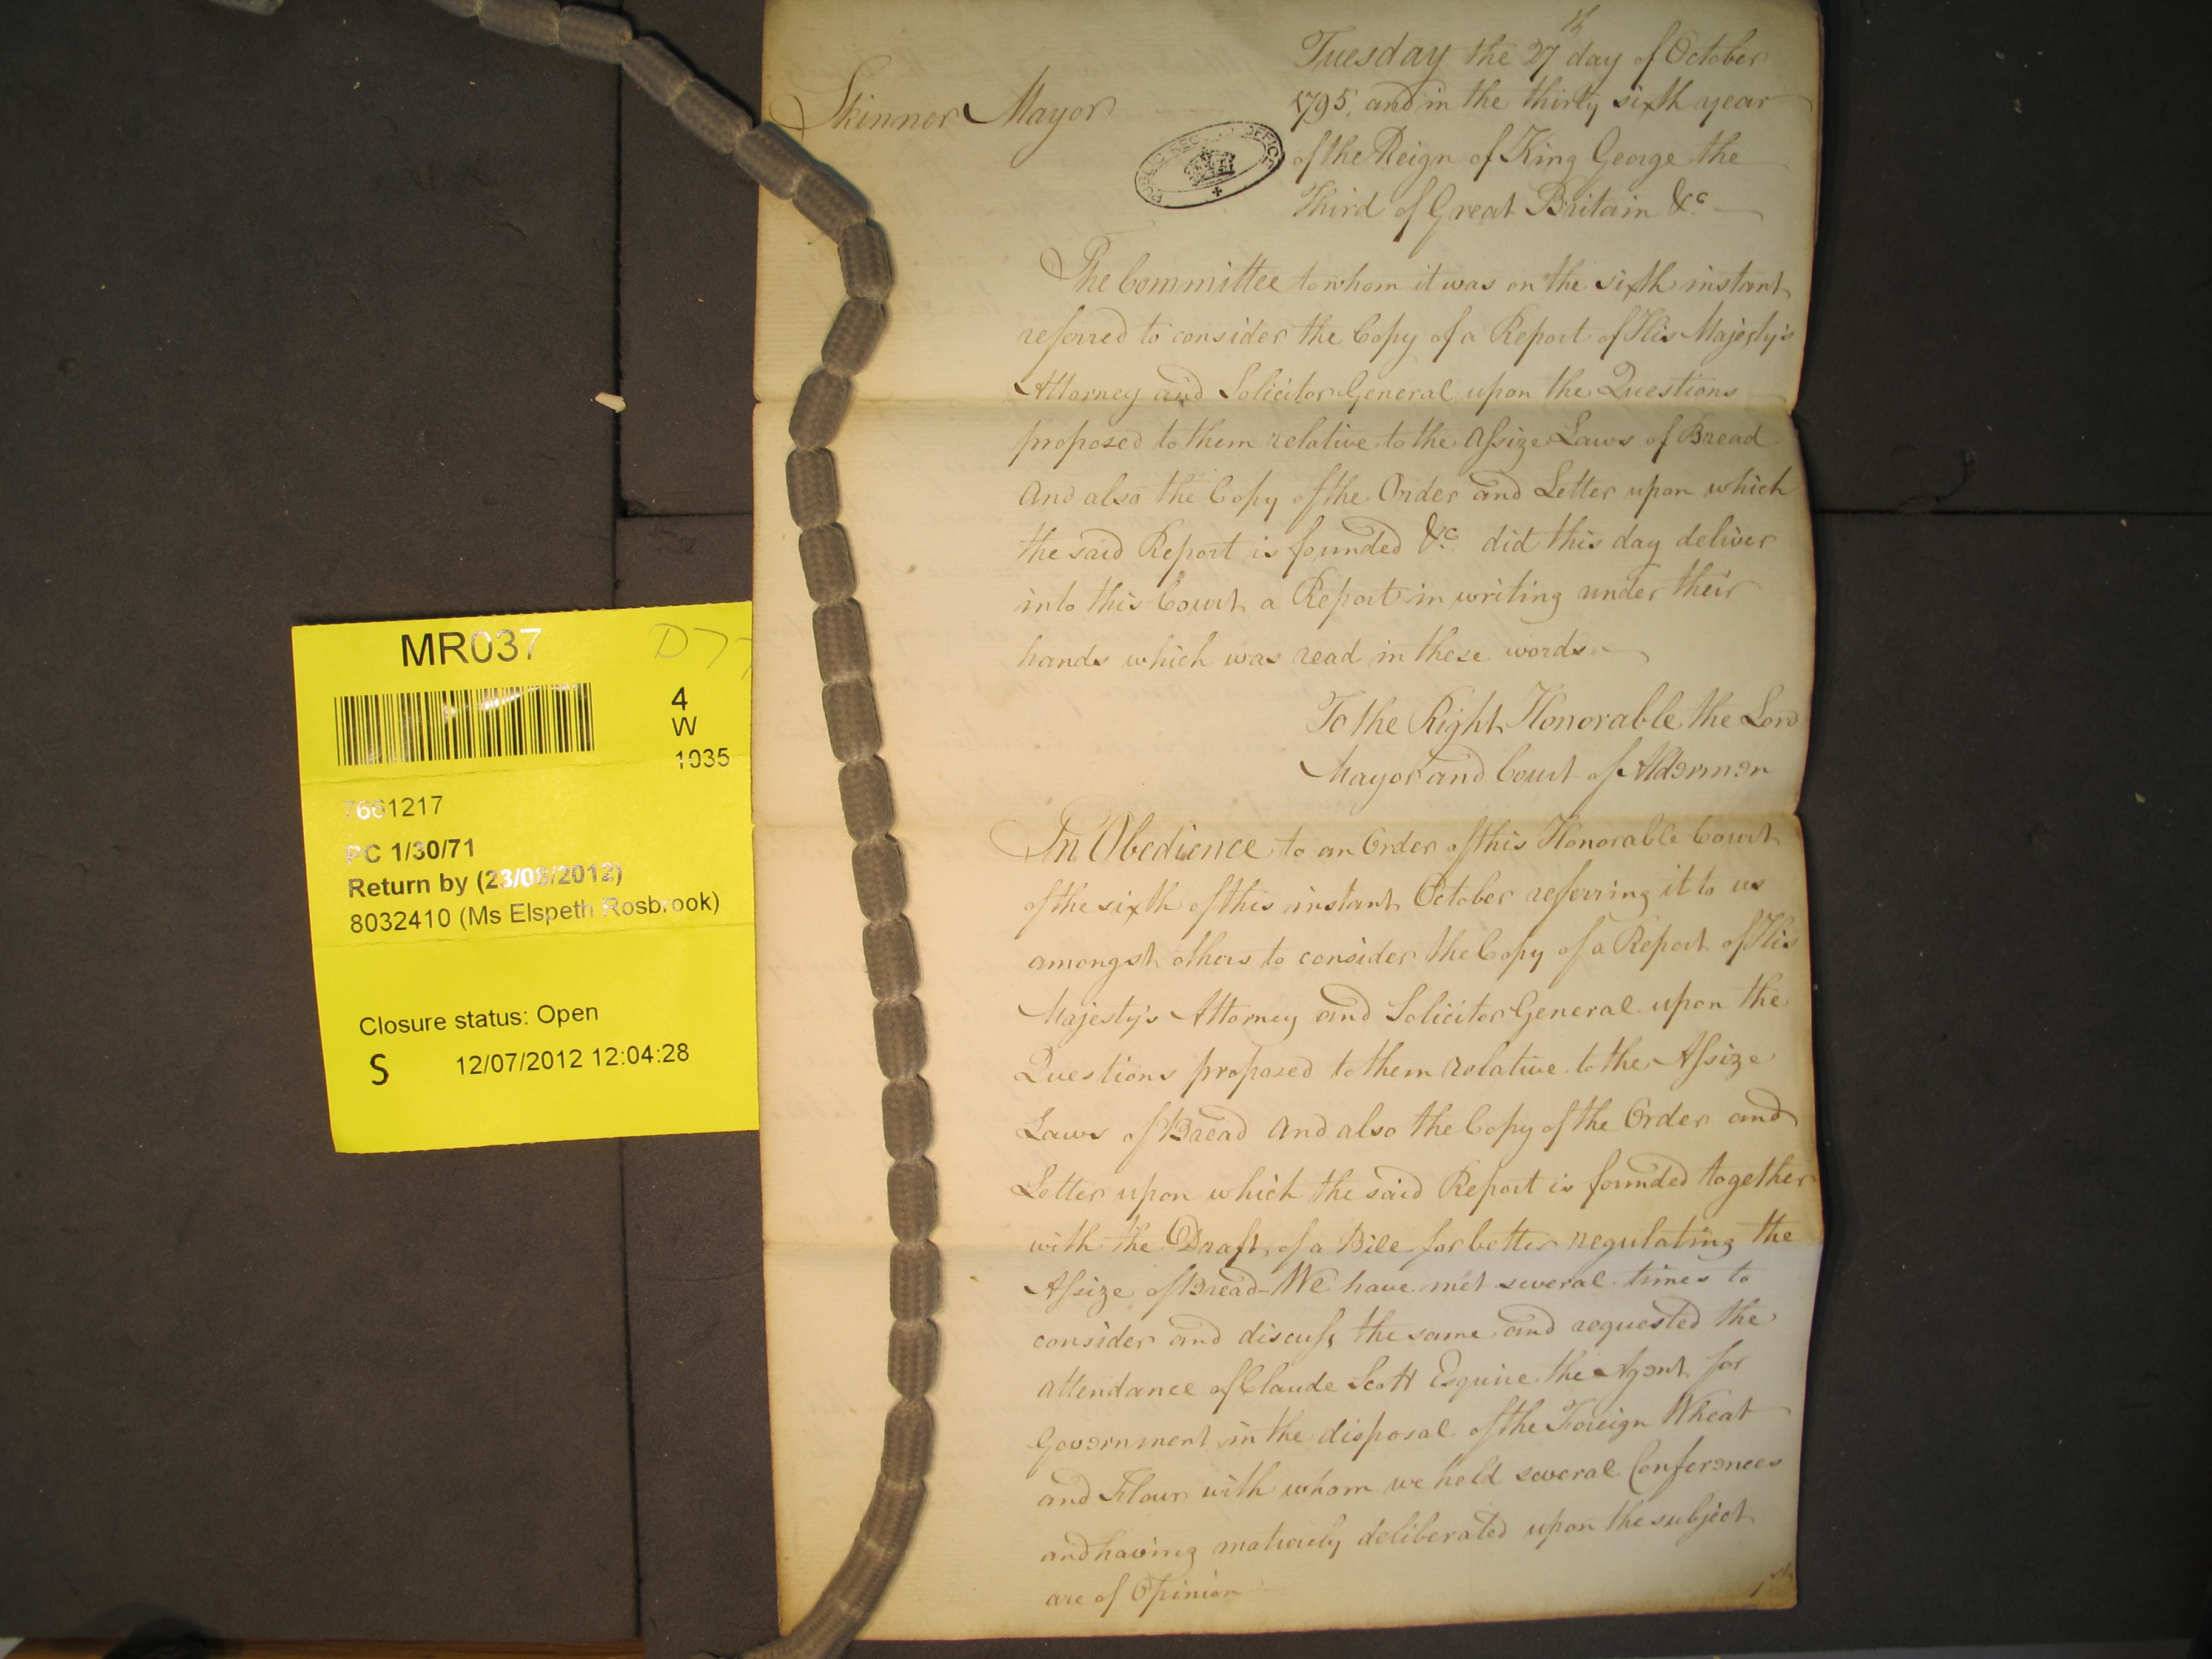 Skinner Mayor
Tuesday the 27th day of October
1795, and in the thirty sixth year
of the Reign of King George the
Third of Great Britain &c
PUBLIC RECORD OFFICE
The Committee to whom it was on the sixth instant
referred to consider the Copy of a Report of His Majesty's
Attorney and Solicitor General upon the Questions
proposed to them relative to the Assize Laws of Bread
And also the Copy of the Order and Letter upon which
the said Report is founded &c did this day deliver
into this Court a Report in writing under their
hands which was read in these words
To the Right Honorable the Lord
Mayor and Court of Aldermen
In Obedience to an Order of this Honorable Court
of the sixth of this instant October referring it to us
amongst others to consider the Copy of a Report of His
Majesty's Attorney and Solicitor General upon the
Questions proposed to them relative to the Assize
Laws of Bread And also the Copy of the Order and
Letter upon which the said Report is founded together
with the Draft of a Bill for better regulating the
Assize of Bread - We have met several times to
consider and discuss the same and requested the
attendance of Claude Scott Esquire the Agent for
Government in the disposal of the Foreign Wheat
and Flour with whom we held several Conferences
and having maturely deliberated upon the subject
are of Opinion
1st
MR037
D77
4
W
1035
7661217
PC 1/30/71
Return by (23/08/2012)
8032410 (Ms Elspeth Rosbrook)
Closure status: Open
S 12/07/2012 12:04:28